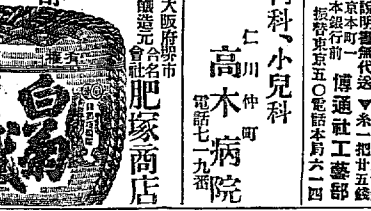 說明書無代送▼糸一把廿五錢
東京本町一
本銀行前
博通社工藝部
振替東京五〇電話本局六一四
內科、小兒科
仁川仲町
高木病院
電話七一九番
大阪府堺市
釀造元
合名
會社
肥塚商店
白菊